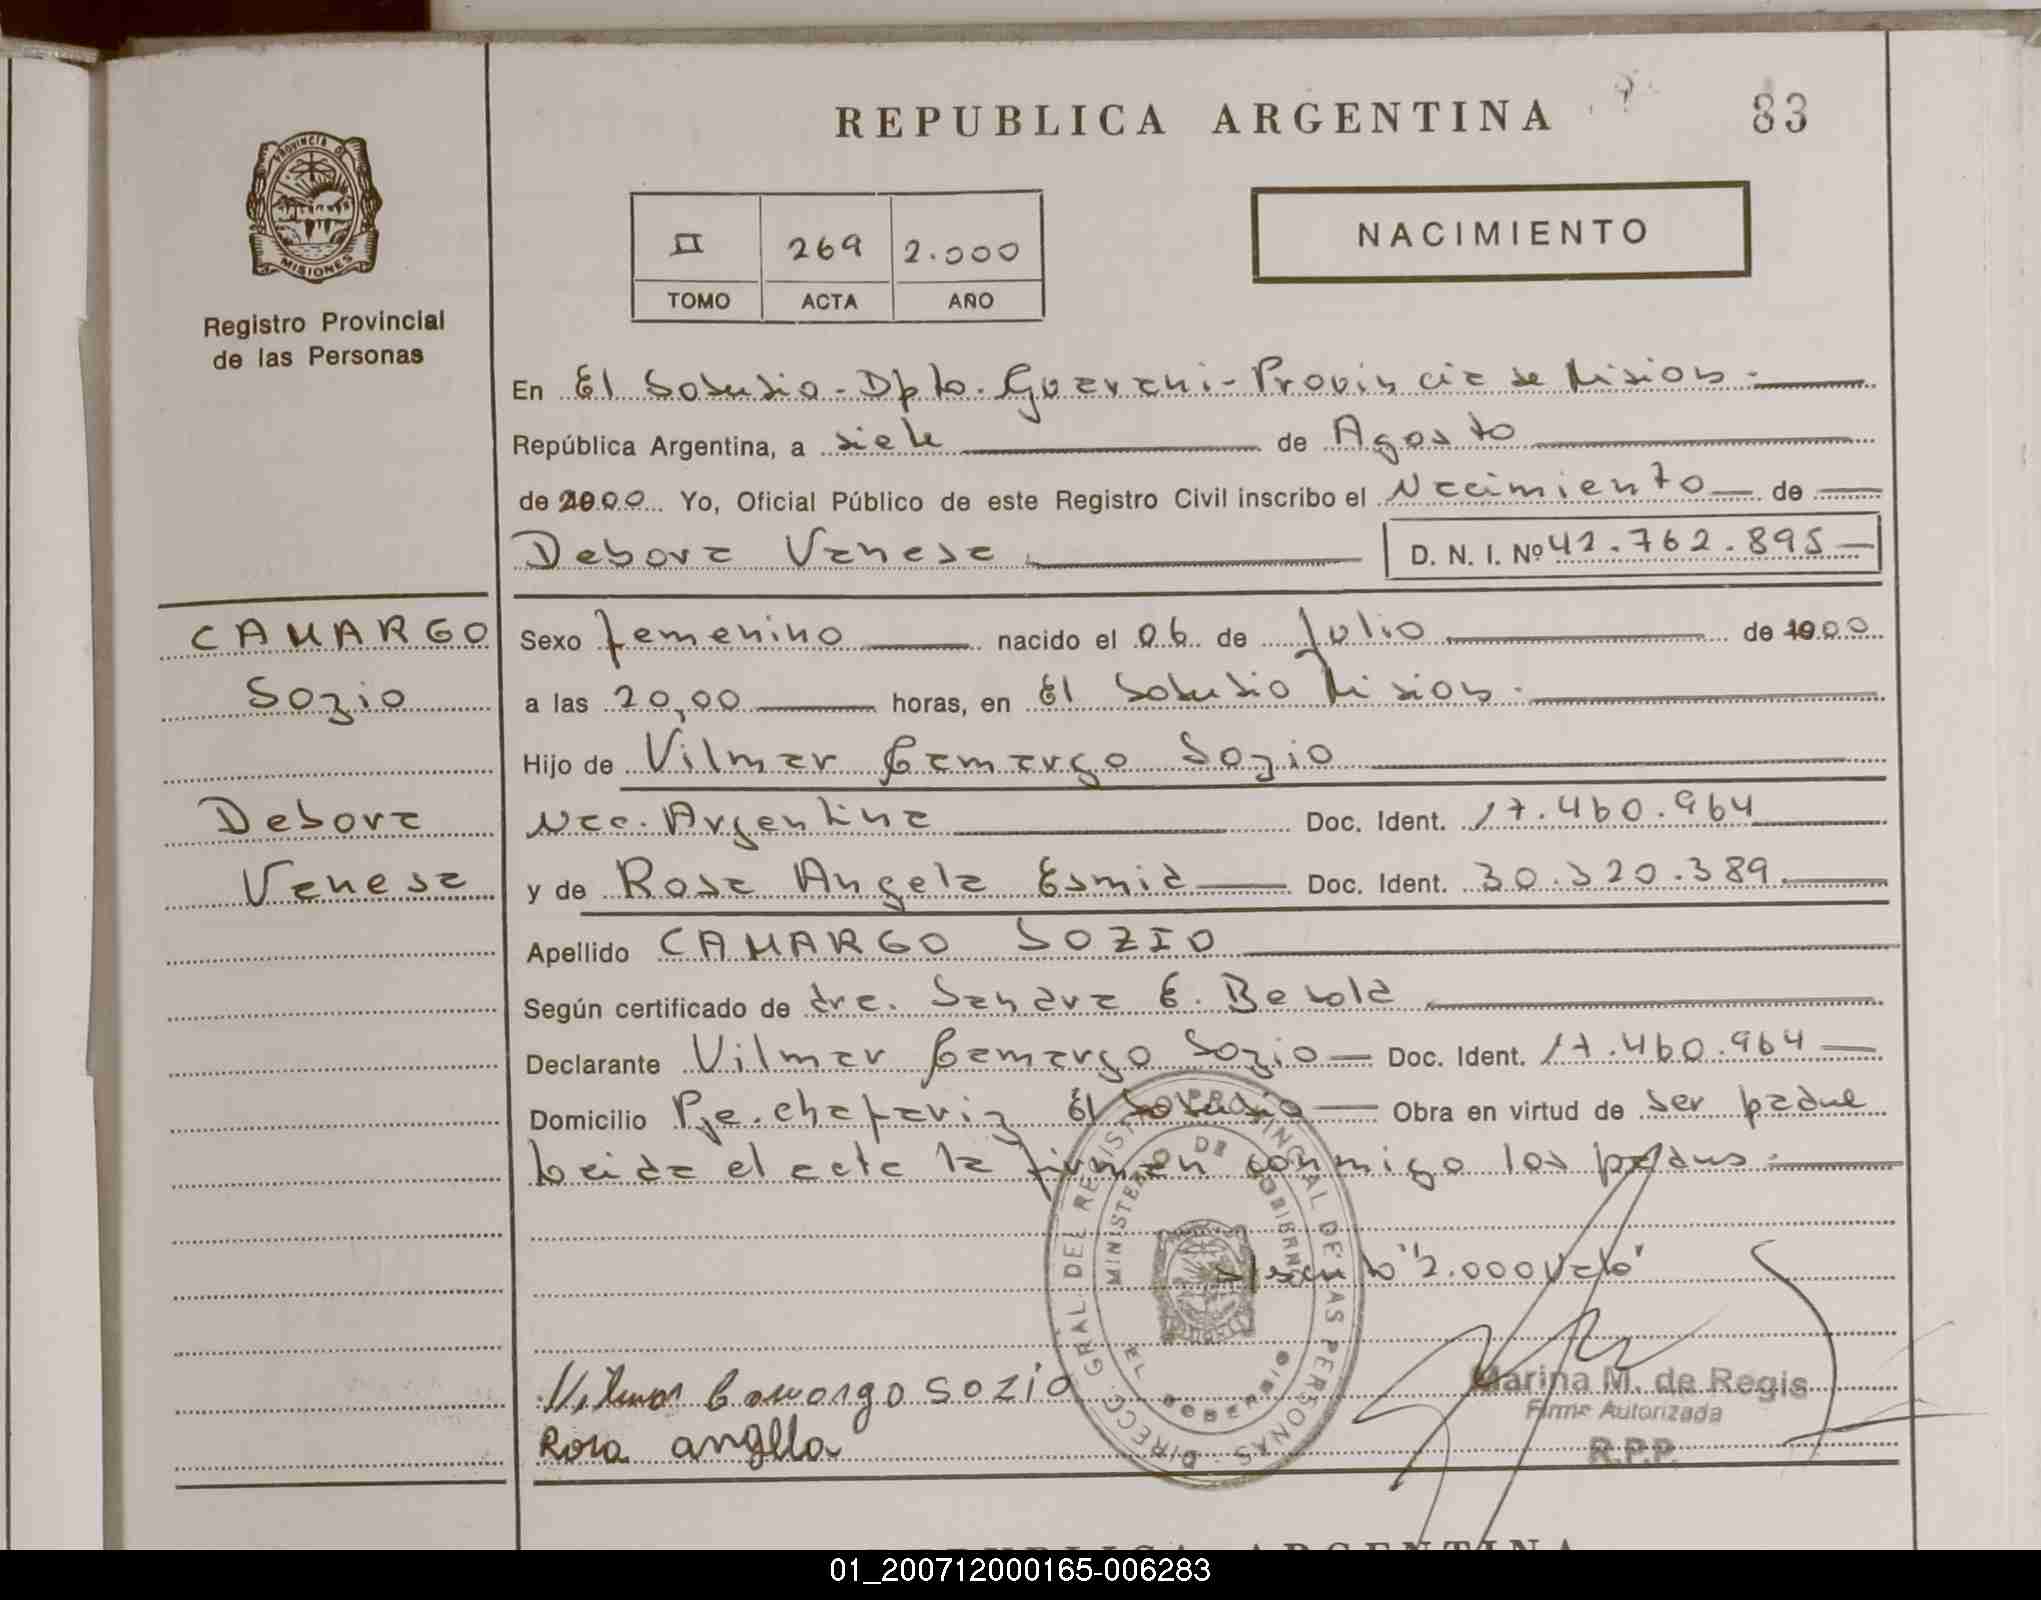 REPUBLICA ARGENTINA
83
PROVINCIA D
MISIONES
Registro Provincial
de las Personas
II 269 2.000
TOMO ACTA AÑO
NACIMIENTO
En El Soberbio - Dpto. Guarani - Provincia de Misiones.
República Argentina, a siete de Agosto
de 2000 Yo, Oficial Público de este Registro Civil inscribo el Nacimiento de
Debora Vanesa D. N. I. Nº 42.762.895
CAMARGO
Sozio
Debora
Vanesa
Sexo femenino nacido el 06 de Julio de 00
a las 20,00 horas, en El Soberbio Misiones.
Hijo de Vilmar Camargo Sozio
Nac. Argentina Doc. Ident. 17.460.964
y de Rosa Angela Esmid Doc. Ident. 30.320.389.
Apellido CAMARGO SOZIO
Según certificado de dra. Sandra E.
Declarante Vilmar Camargo Sozio Doc. Ident. 17.460.964
Domicilio Pje. El Soberbio Obra en virtud de ser padre
Leida el acta la firman conmigo los padres.
"2.000 Vale"
DIRECC. GRAL. DEL REGISTRO PROVINCIAL DE LAS PERSONAS
MINISTERIO DE GOBIERNO
EL SOBERBIO
Vilmar Camargo Sozio
Rosa angella
Marina M. de Regis
Firma Autorizada
R.P.P.
REPUBLICA ARGENTINA
01_200712000165-006283